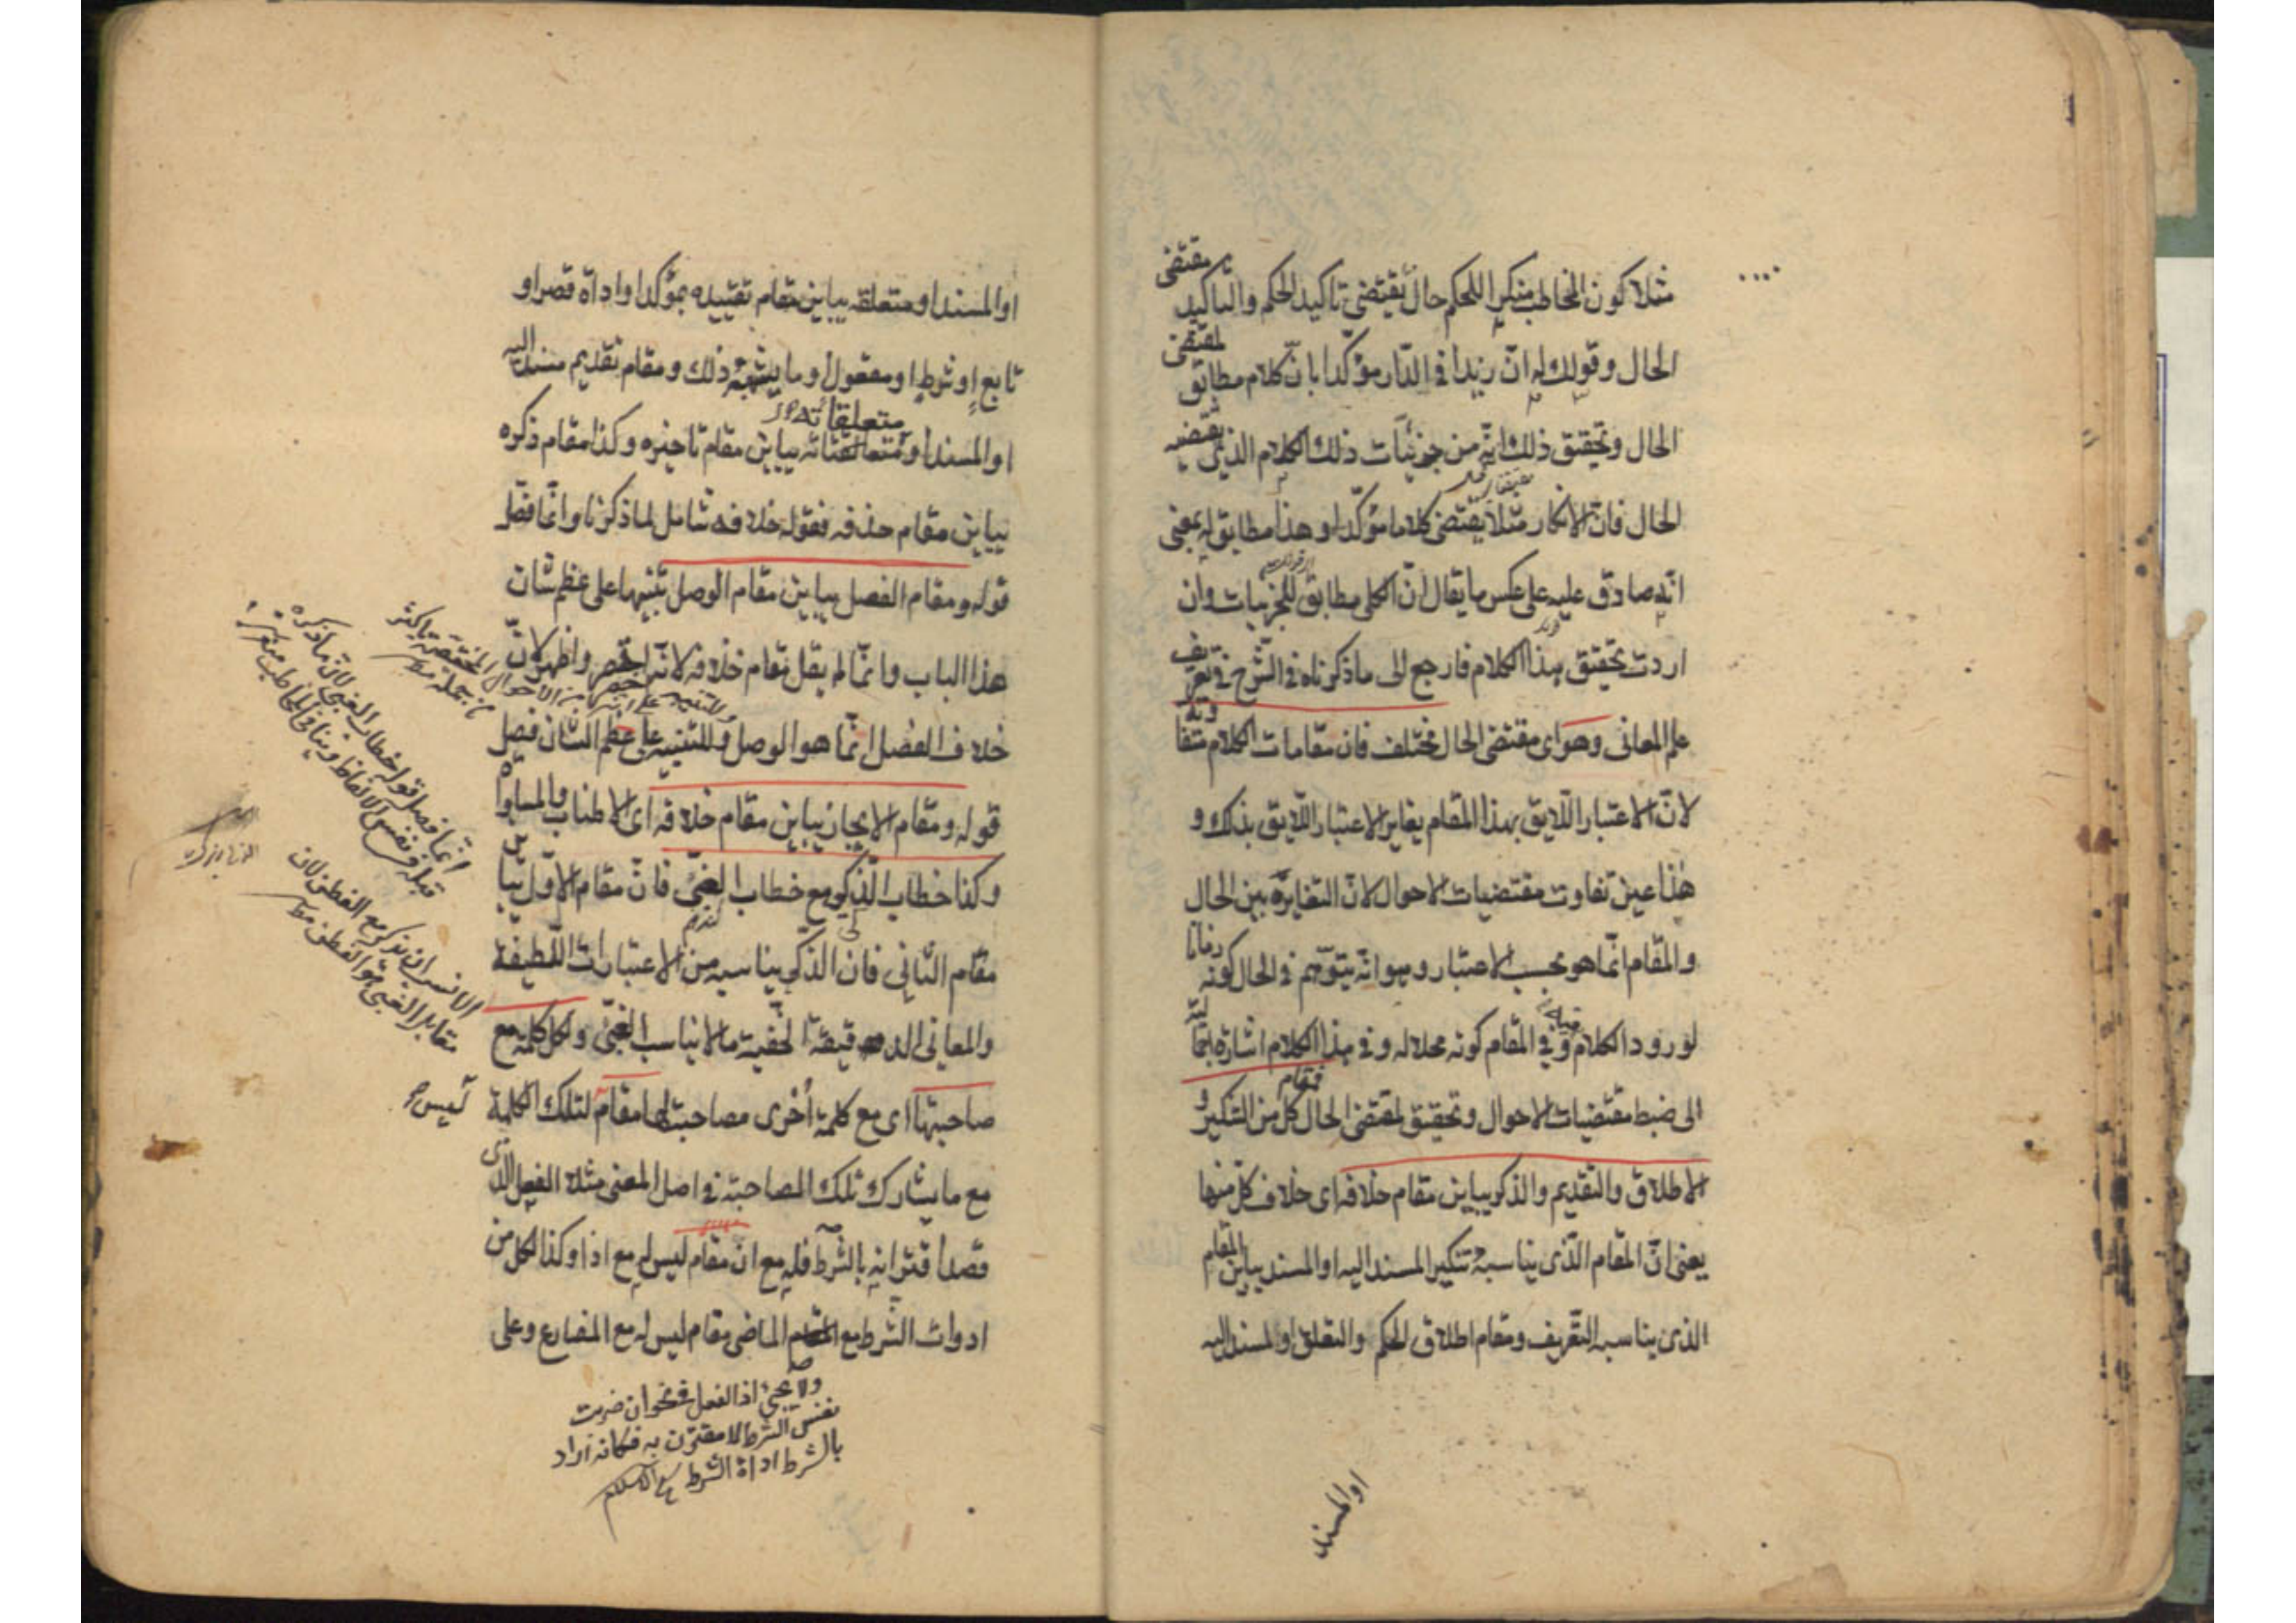 مثلا كون المخاطب منكرا للحكم حال يقتضى تاكيد الحكم والتاكيد مقتضى
الحال وقولك له ان زيدا فى الدّار مؤكّدا بانّ كلام مطابق لمقتضى
الحال وتحقيق ذلك انّه من جزئيّات ذلك الكلام الذى يقتضيه
الحال فانّ الانكار مثلا يقتضى كلاما مؤكّدا وهذا مطابق له بمعنى
انّه صادق عليه على عكس ما يقال انّ الكلى مطابق للجزئيات وان
اردت تحقيق هذا الكلام فارجع الى ما ذكرناه فى الشّرح فى تعريف
علم المعانى وهو اى مقتضى الحال مختلف فان مقامات الكلام متفاوتة
لانّ الاعتبار اللّايق بهذا المقام يغاير الاعتبار اللّايق بذلك و
هذا عين تفاوت مقتضيات الاحوال لانّ التغاير بين الحال
والمقام انّما هو بحسب الاعتبار وهو انّه يتوّهم فى الحال كونه زمانا
لورود الكلام فيه وفى المقام كونه محلا له وفى هذا الكلام اشارة اجماليّة
الى ضبط مقتضيات الاحوال وتحقيق لمقتضى الحال فمقام كل من التنكير و
الاطلاق والتقديم والذكر يباين مقام خلافه اى خلاف كلّ منها
يعنى انّ المقام الذى يناسبه تنكير المسند اليه او المسند يباين المقام
الذى يناسبه التعريف ومقام اطلاق الحكم والتعلق او المسند اليه
او المسند
او المسند او متعلقه يباين مقام تقييده بمؤكد او اداة قصر او
تابع او شرط او مفعول او ما يشبه ذلك ومقام تقديم مسند اليه
متعلقاته
او المسند او متعلقاته يباين مقام تاخيره وكذا مقام ذكره
يباين مقام حذفه فقوله خلافه شامل لما ذكرنا وانّما فصّل
قوله ومقام الفصل يباين مقام الوصل تنبيها على عظم شان
هذا الباب وانّما لم يقل مقام خلافه لانّه اخصر واظهر لانّ
خلاف الفصل انّما هو الوصل وللتنبيه على عظم الشان فصل
قوله ومقام الايجاز يباين مقام خلافه اى الاطناب والمساواة
وكذا خطاب الذّكى مع خطاب الغبىّ فانّ مقام الاوّل يباين
مقام الثانى فان الذّكى يناسبه من الاعتبارات اللّطيفة
والمعانى الدقيقة الخفيّة ما لا يناسب الغبىّ ولكل كلمة مع
صاحبتها اى مع كلمة اخرى مصاحبة لها مقام ليس لتلك الكلمة
مع ما يشارك تلك المصاحبة فى اصل المعنى مثلا الفعل الذى
قصد اقترانه بالشّرط فله مع ان مقام ليس له مع اذا وكذا لكل من
ادوات الشرط مع الماضى مقام ليس له مع المضارع وعلى
انّما فصل قوله خطاب الغبى لان ما ذكره
مقابل الغبى هو الفطن
نفس الشرط لا مقترن به فكانه اراد
بالشرط اداة الشرط